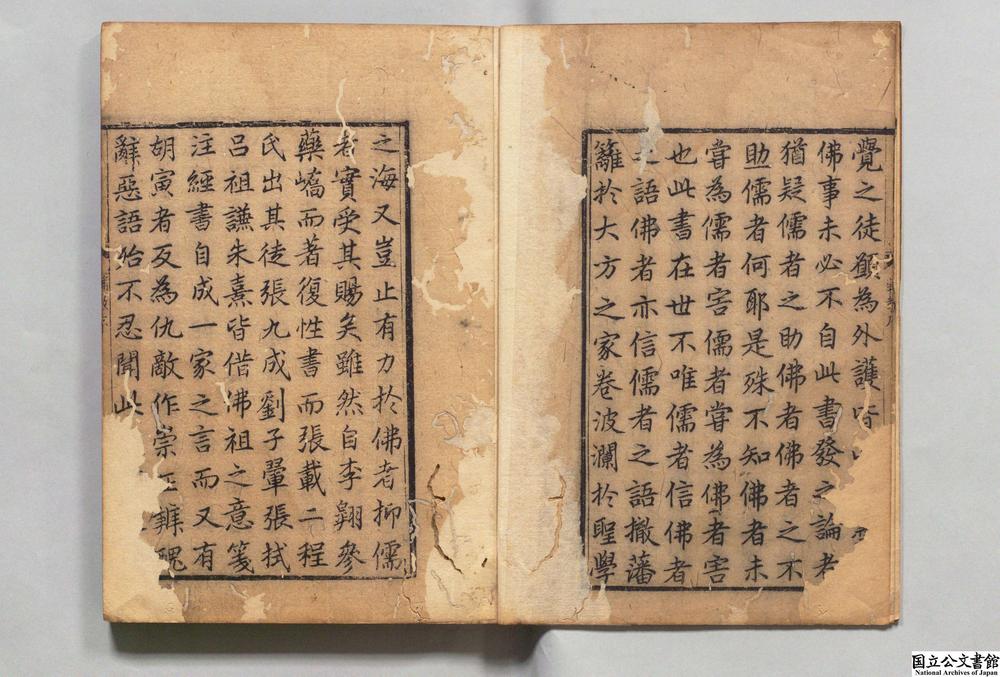 覺之徒顧為外護
佛事未必不自此書發之論者
猶疑儒者之助佛者佛者之不
助儒者何耶是殊不知佛者未
嘗為儒者害儒者嘗為佛者害
也此書在世不唯儒者信佛者
之語佛者亦信儒者之語撤藩
籬於大方之家卷波瀾於聖學
之海又豈止有力於佛老抑儒
者實受其賜矣雖然自李翱參
藥嶠而著復性書而張載二程
氏出其徒張九成劉子翬張栻
呂祖謙朱熹皆借佛祖之意箋
注經書自成一家之言而又有
胡寅者反為仇敵作崇正辨醜
辭惡語殆不忍聞此
国立公文書館
National Archives of Japan